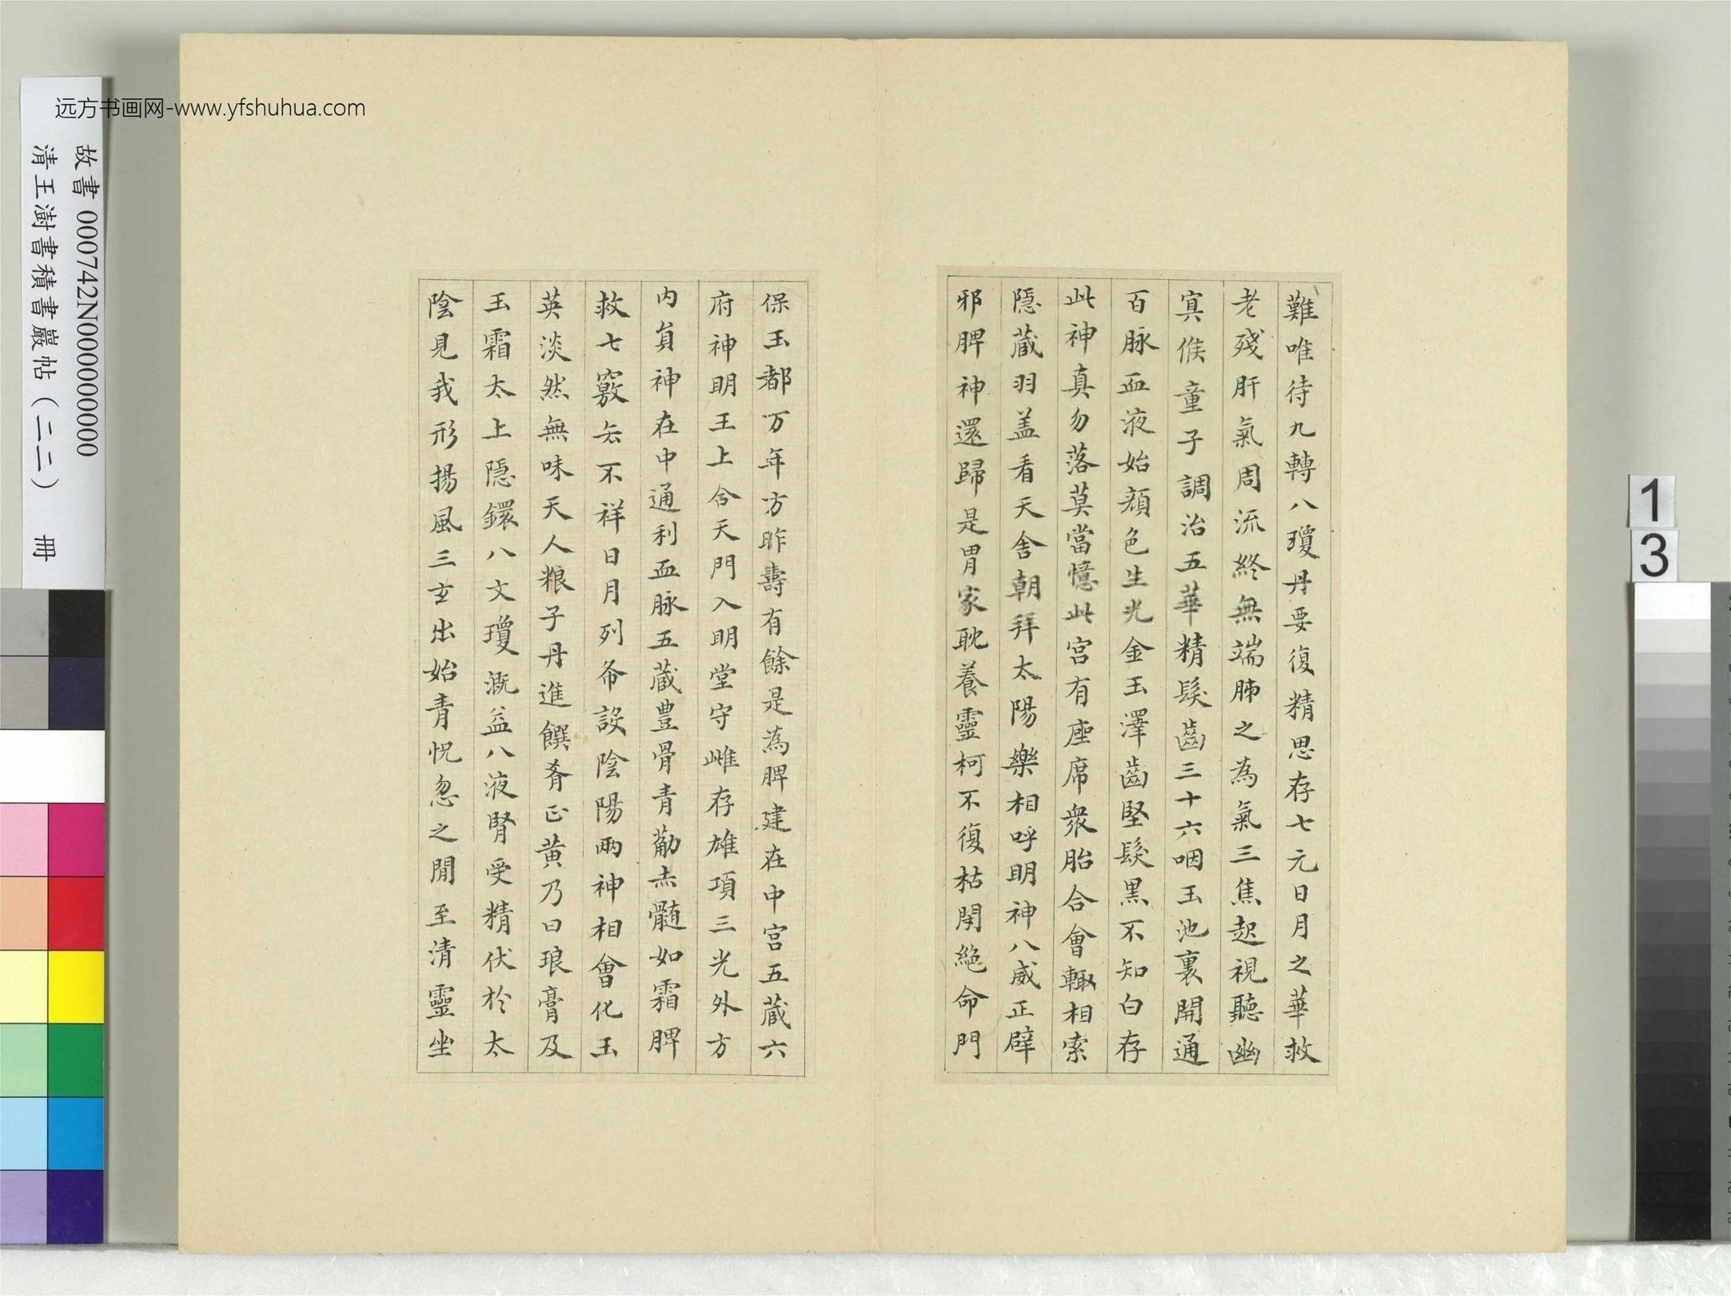 远方书画网-www.yfshuhua.com
故書 000742N000000000
清王澍書積書巖帖（二二） 冊
1
3
難唯待九轉八瓊丹要復精思存七元日月之華救
老殘肝氣周流終無端肺之為氣三焦起視聽幽
冥候童子調治五華精髮齒三十六咽玉池裏開通
百脉血液始顏色生光金玉澤齒堅髮黑不知白存
此神真勿落莫當憶此宮有座席衆胎合會輙相索
隱蔵羽盖看天舍朝拜太陽樂相呼明神八威正辟
邪脾神還歸是胃家耽養靈柯不復枯閉絕命門
保玉都万年方昨壽有餘是為脾建在中宮五蔵六
府神明王上合天門入明堂守雌存雄項三光外方
内貟神在中通利血脉五蔵豊骨青觔赤髓如霜脾
救七竅去不祥日月列布設陰陽兩神相會化玉
英淡然無味天人粮子丹進饌肴正黄乃曰琅膏及
玉霜太上隱鐶八文瓊漑益八液腎受精伏於太
陰見我形揚風三玄出始青怳忽之間至清靈坐